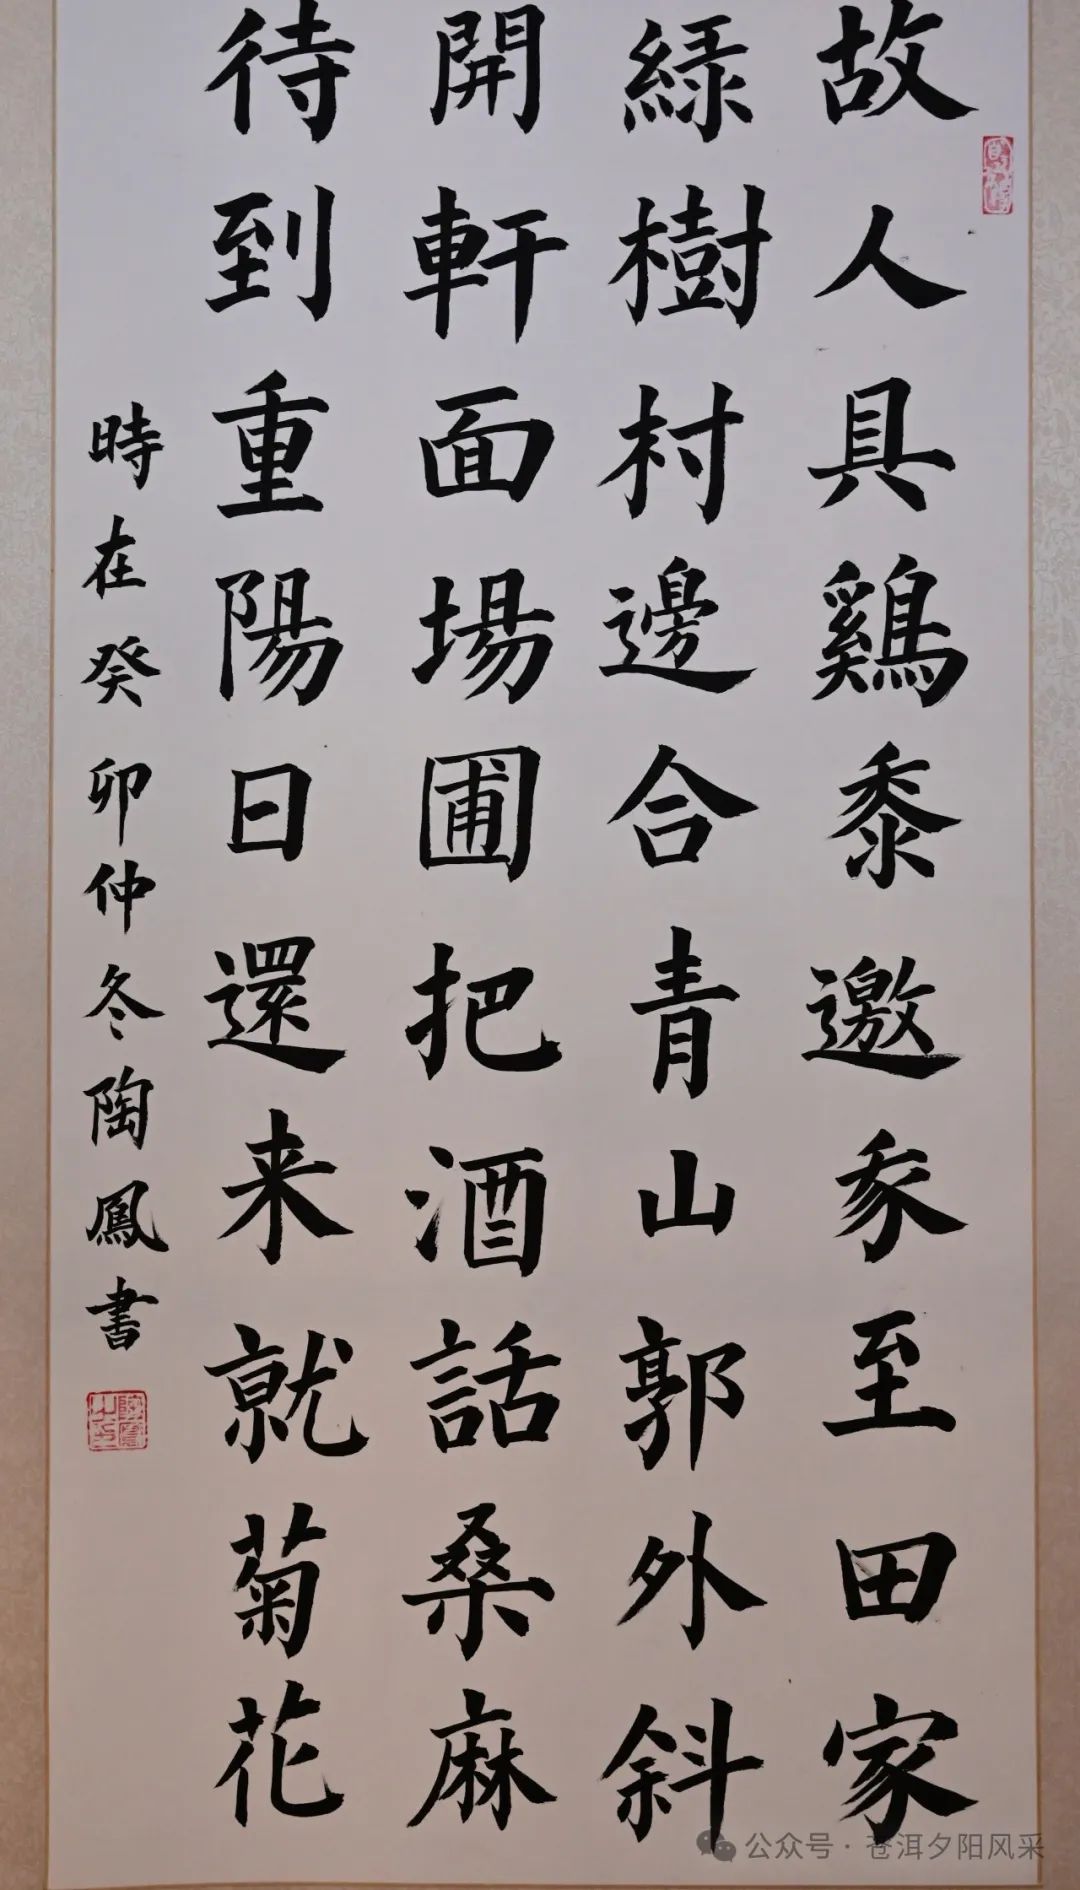 故人具鷄黍邀我至田家
綠樹村邊合青山郭外斜
開軒面場圃把酒話桑麻
待到重陽日還来就菊花
時在癸卯仲冬陶鳳書
公众号·苍洱夕阳风采